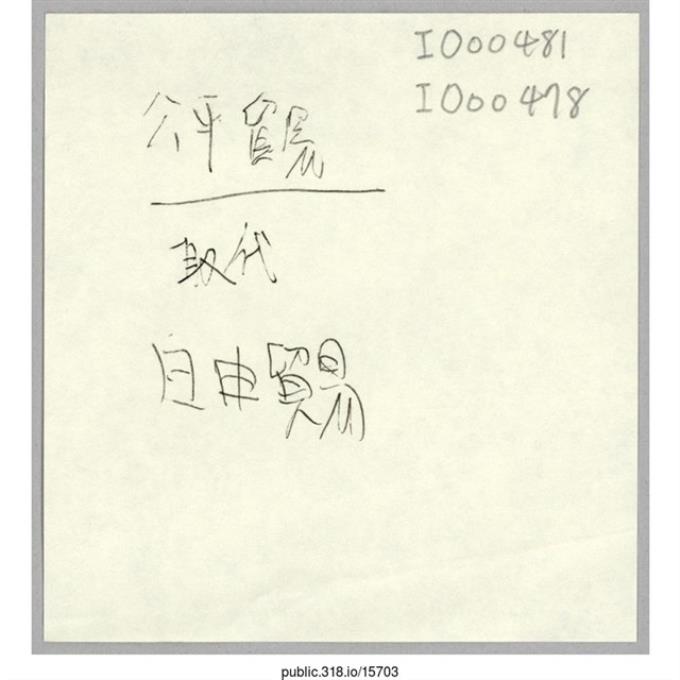 IOOO481
IOOO478
公平貿易
取代
自由貿易
public.318.io/15703